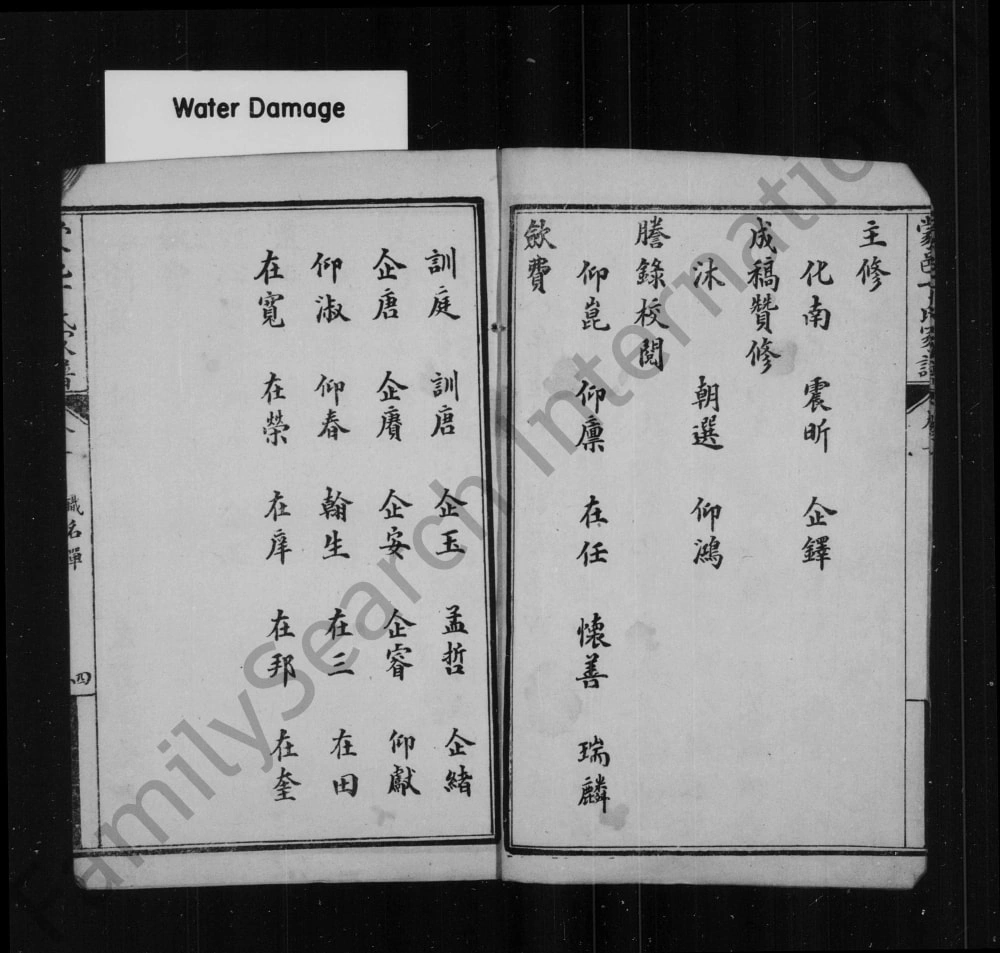 Water Damage
主修
化南 震昕 企鐸
成稿贊修
沐 朝選 仰鴻
謄錄校閱
仰崑 仰廪 在任 懷善 瑞麟
歛費
訓庭 訓唐 企玉 孟哲 企緒
企唐 企賡 企安 企睿 仰獻
仰淑 仰春 翰生 在三 在田
在寬 在榮 在庠 在邦 在奎
職名單
四
FamilySearch International